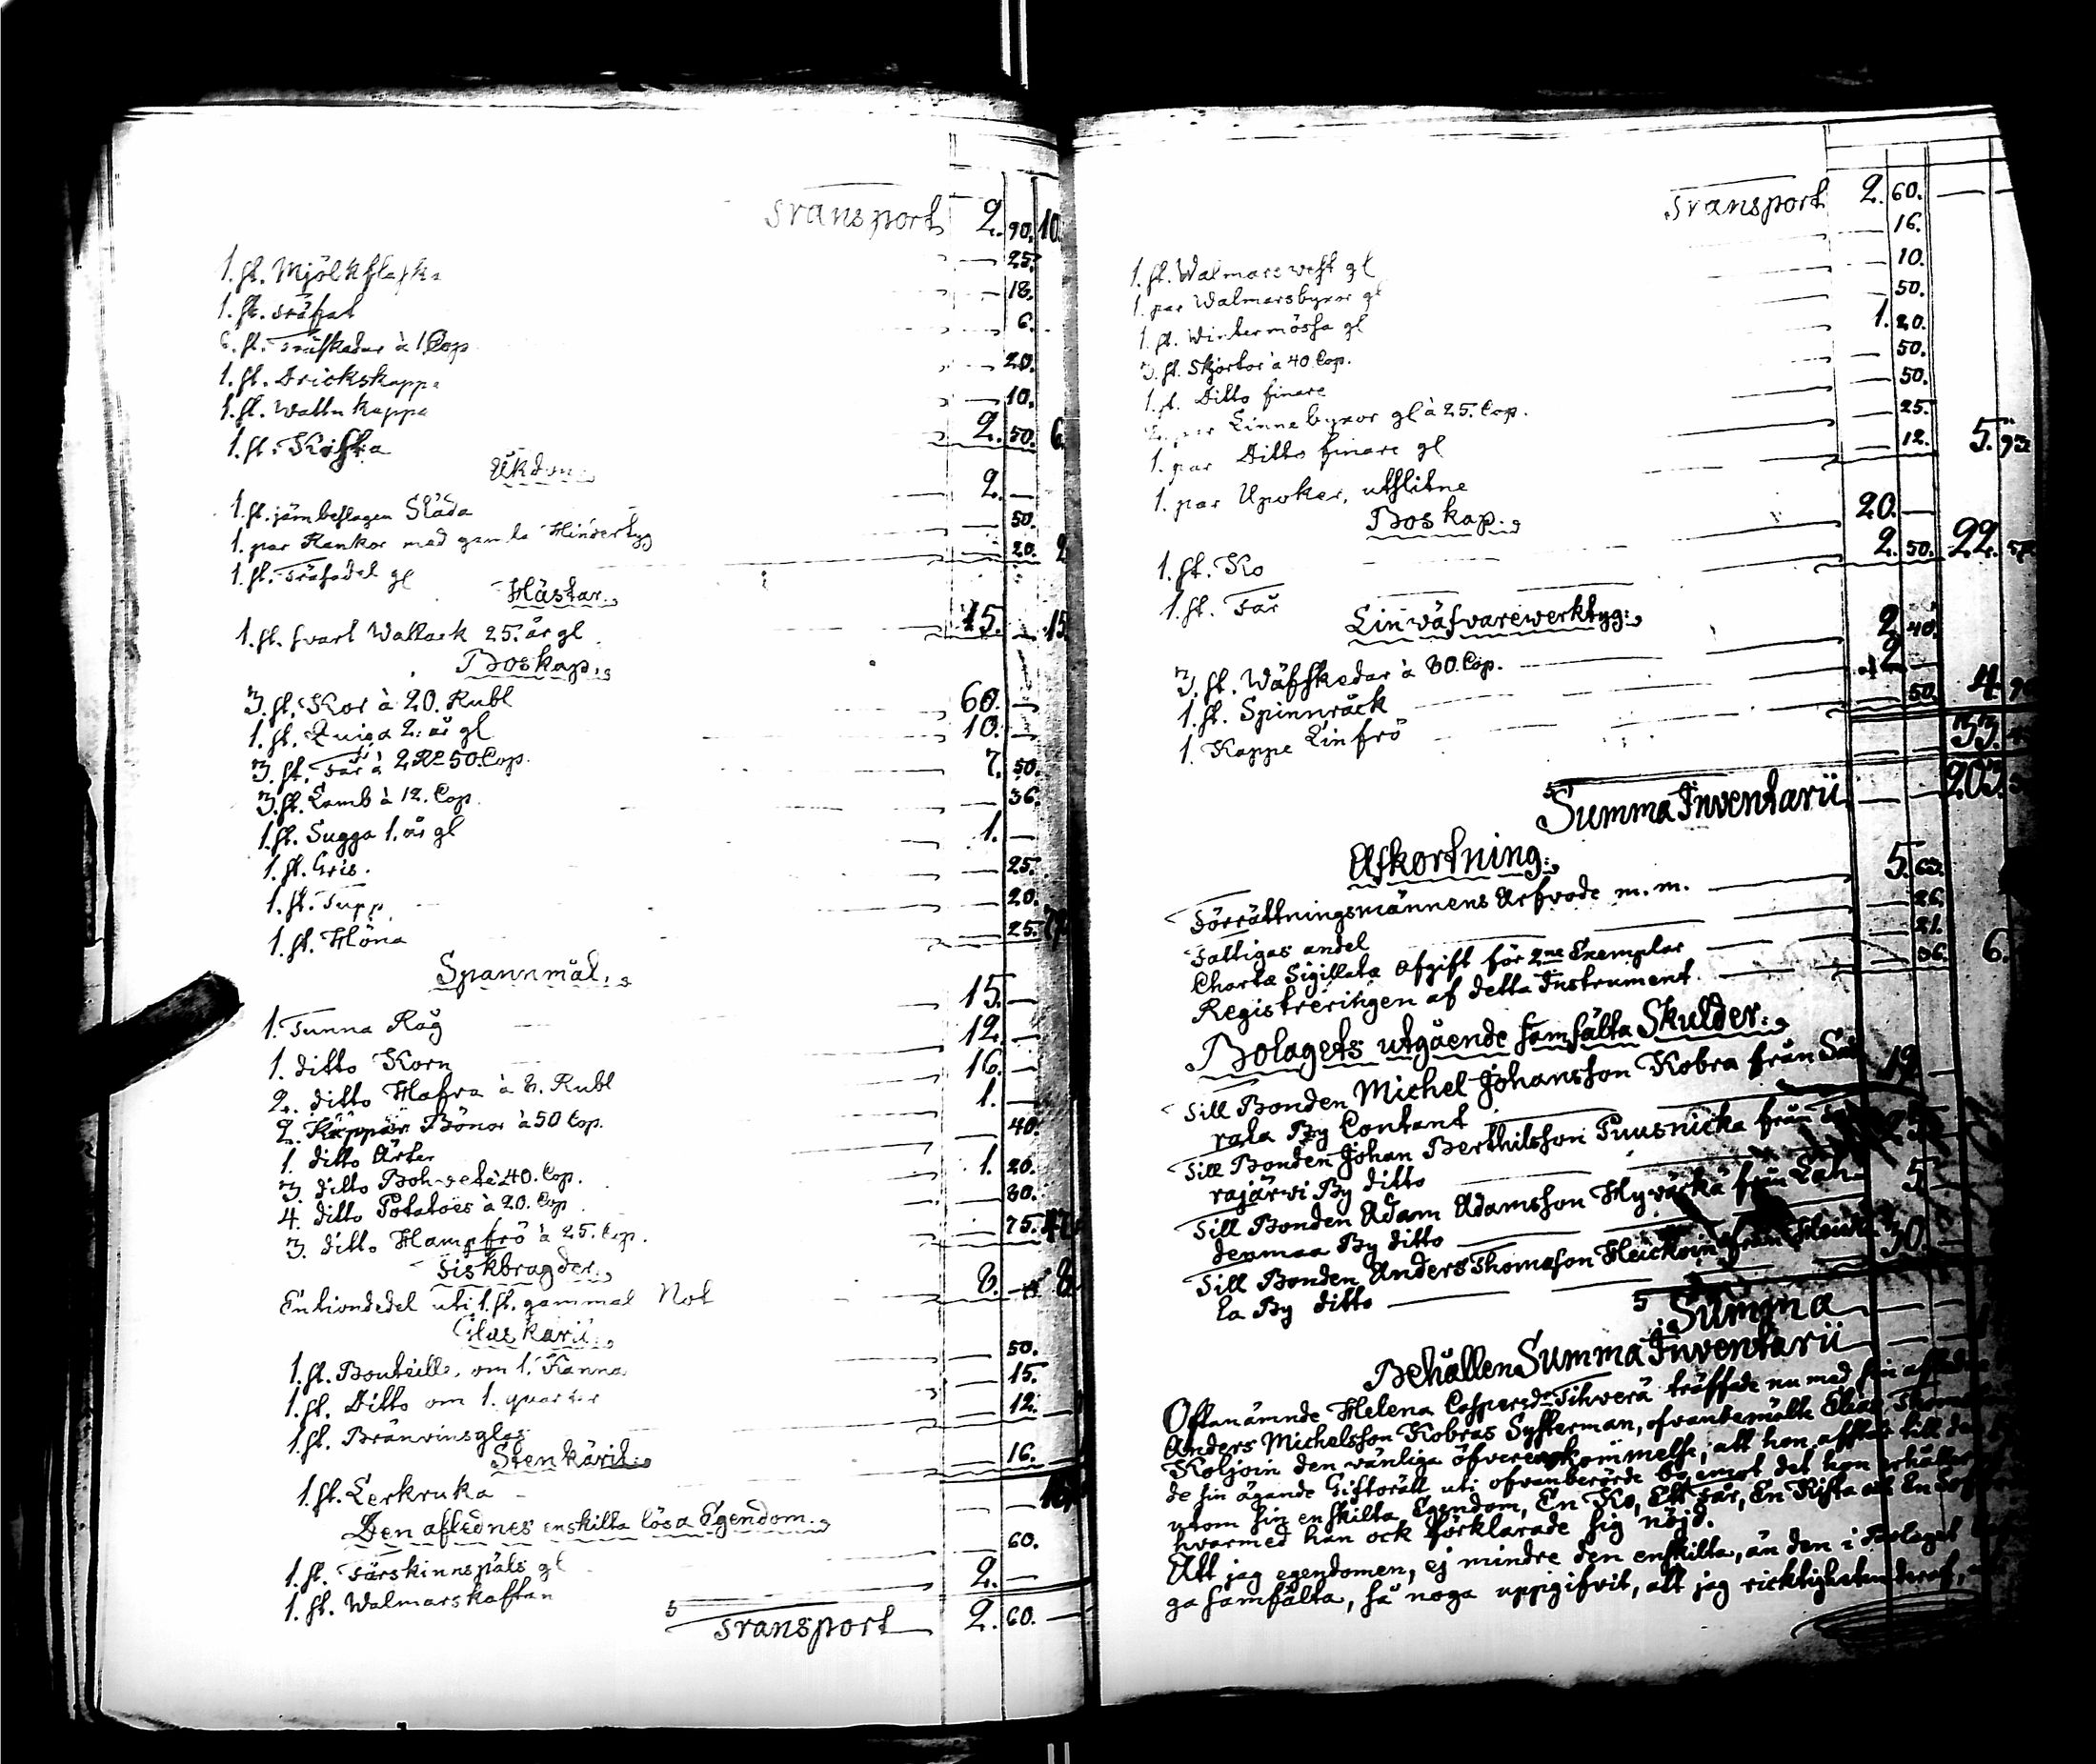 Transport 2. 90. 10.
1. st. Mjölkflaska 25.
1. st. Träfat 18.
6. st. Träskedar à 1 Cop 6.
1. st. Drickskappa 20.
1. st. Wattu kappa 10.
1. st. Kista 2. 50. 6.
Åkdon:
1. st. järnbeslagen Släda 2. —
1. par Rankor med gamla Hindertyg 50.
1. st. Träsadel gl 20. 2
Hästar:
1. st. svart Wallack 25. år gl 15. — 15.
Boskap:
3. st. Kor à 20. Rubl 60. —
1. st. Quiga 2. år gl 10. —
3. st. Får à 2 Rl 50. Cop. 7. 50.
3. st. Lamb à 12. Cop. 36.
1. st. Sugga 1. år gl 1. —
1. st. Gris. 25.
1. st. Tupp 20.
1. st. Höna 25.
Spannmål:
1. Tunna Råg 15. —
1. ditto Korn 12. —
2. ditto Hafra à 8. Rubl 16. —
2. Kappar Bönor à 50 Cop. 1. —
1. ditto Ärter 40.
3. ditto Bohvete à 40. Cop. 1. 20.
4. ditto Potatoes à 20. Cop 80.
3. ditto Hampfrö à 25. Cop. 75.
Fiskbragder:
En tiondedel uti 1. st. gammal Not 8. — 8.
Glaskäril:
1. st. Bouteille om 1. Kanna 50.
1. st. Ditto om 1. quarter 15.
1. st. Bränvinsglas 12.
Stenkäril:
1. st. Lerkruka 16.
Den aflednes enskilta lösa Egendom:
1. st. Fårskinnspäls gl 60.
1. st. Walmarskaftan 2. —
Transport 2. 60. —
Transport 2. 60. —
1. st. Walmarswest gl 16.
1. par Walmarsbyxor gl 10.
1. st. Wintermössa gl 50.
3. st. Skjortor à 40. Cop. 1. 20.
1. st. Ditto finare 50.
2. par Linnebyxor gl à 25. Cop. 50.
1. par Ditto finare gl 25.
1. par Upoker, utslitne 12. 5. 93
Boskap:
1. st. Ko 20. —
1. st. Får 2. 50. 22. 50
Linväfvarewerktyg:
3. st. Wäfskedar à 80. Cop. 2. 40.
1. st. Spinnråck 2 —
1. Kappe Linfrö 50. 4. 90
33.
Summa Inventarii — — 203.
Afkortning:
Förrättningsmännens Arfvode m. m. 5.
Fattigas andel 26.
Charta Sigillata afgift för 2ne Exemplar 21.
Registreringen af detta Instrument 36. 6.
Bolagets utgående samfälta Skulder:
Till Bonden Michel Johansson Kobra från
rala By Contant
Till Bonden Johan Berthilsson Puusnicka från
rajärwi By ditto
Till Bonden Adam Adamsson Hyvärkä från Lah- 5
denmaa By ditto
Till Bonden Anders Thomasson Heickoin från 30.
la By ditto
Summa
Behållen Summa Inventarii
Oftanämnde Helena Caspersdr Tihverä träffade nu med sin
Anders Michelsson Kobras Systerman, ofvanbemälte Elias
Koljoin den vänliga öfverenskommelse, att hon afstår till
de sin ägande Giftorätt uti ofvanberörde bo emot det hon erhåller
utom sin enskilta Egendom, En Ko, Ett Får, En Kista och En
hvarmed han ock förklarade sig nöjd.
Att jag egendomen, ej mindre den enskilta, än den i Bolaget
ga samfälta, så noga uppgifvit, att jag ricktigheten deraf,